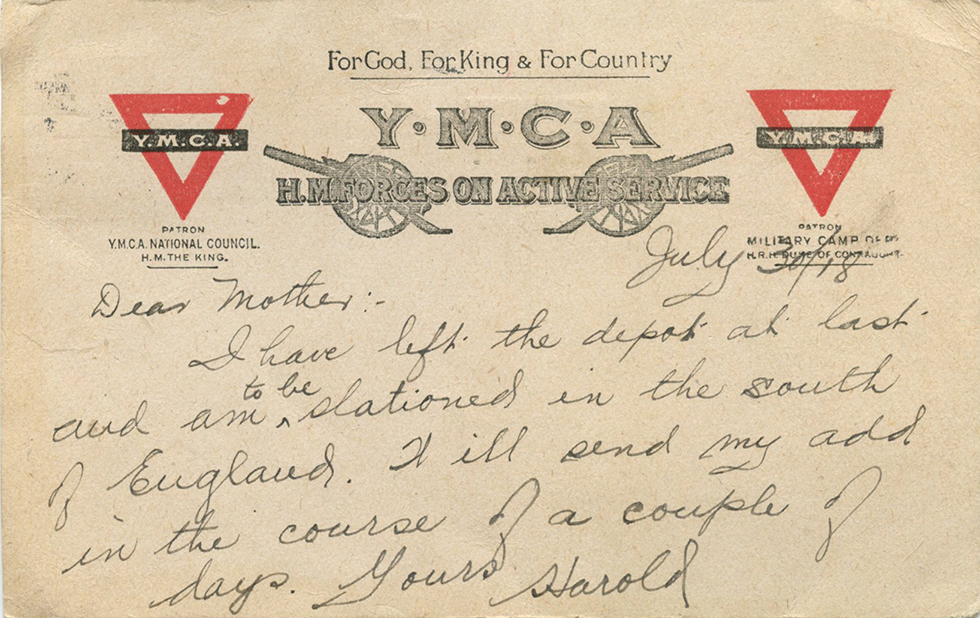 For God, For King & For Country
Y·M·C·A
H.M. FORCES ON ACTIVE SERVICE
Y.M.C.A.
PATRON
Y.M.C.A. NATIONAL COUNCIL.
H.M. THE KING.
Y.M.C.A.
PATRON
MILITARY CAMP DEPT
H.R.H. DUKE OF CONNAUGHT.
July 30/18
Dear Mother:-
I have left the depot at last
and am to be stationed in the south
of England. Will send my add
in the course of a couple of
days. Yours Harold